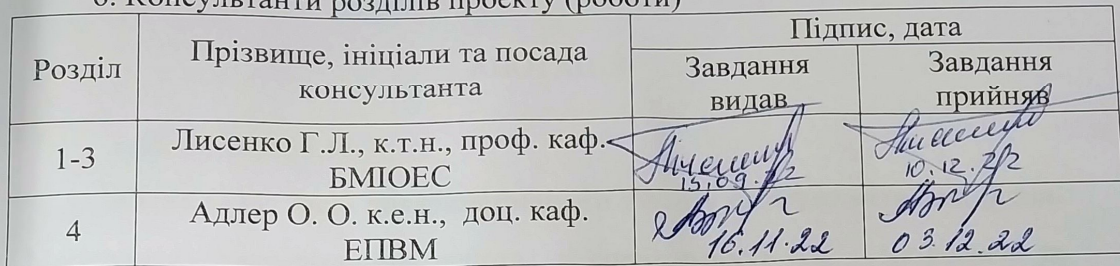 6. Консультанти розділів проєкту (роботи)
Розділ
Прізвище, ініціали та посада
консультанта
Підпис, дата
Завдання
видав
Завдання
прийняв
1-3
Лисенко Г.Л., к.т.н., проф. каф.
БМІОЕС
15.09.22
10.12.22
4
Адлер О. О. к.е.н., доц. каф.
ЕПВМ
16.11.22
03.12.22